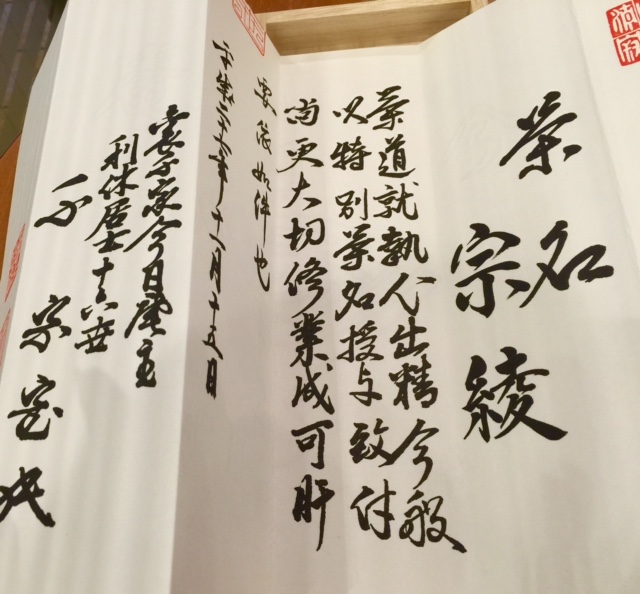 茶名
宗綾
茶道就執心出精今般
以特別茶名授与致付
尚更大切修業成可肝
要依如件也
平成二十六年十一月十五日
裏千家今日庵主
利休居士十六世
千宗室